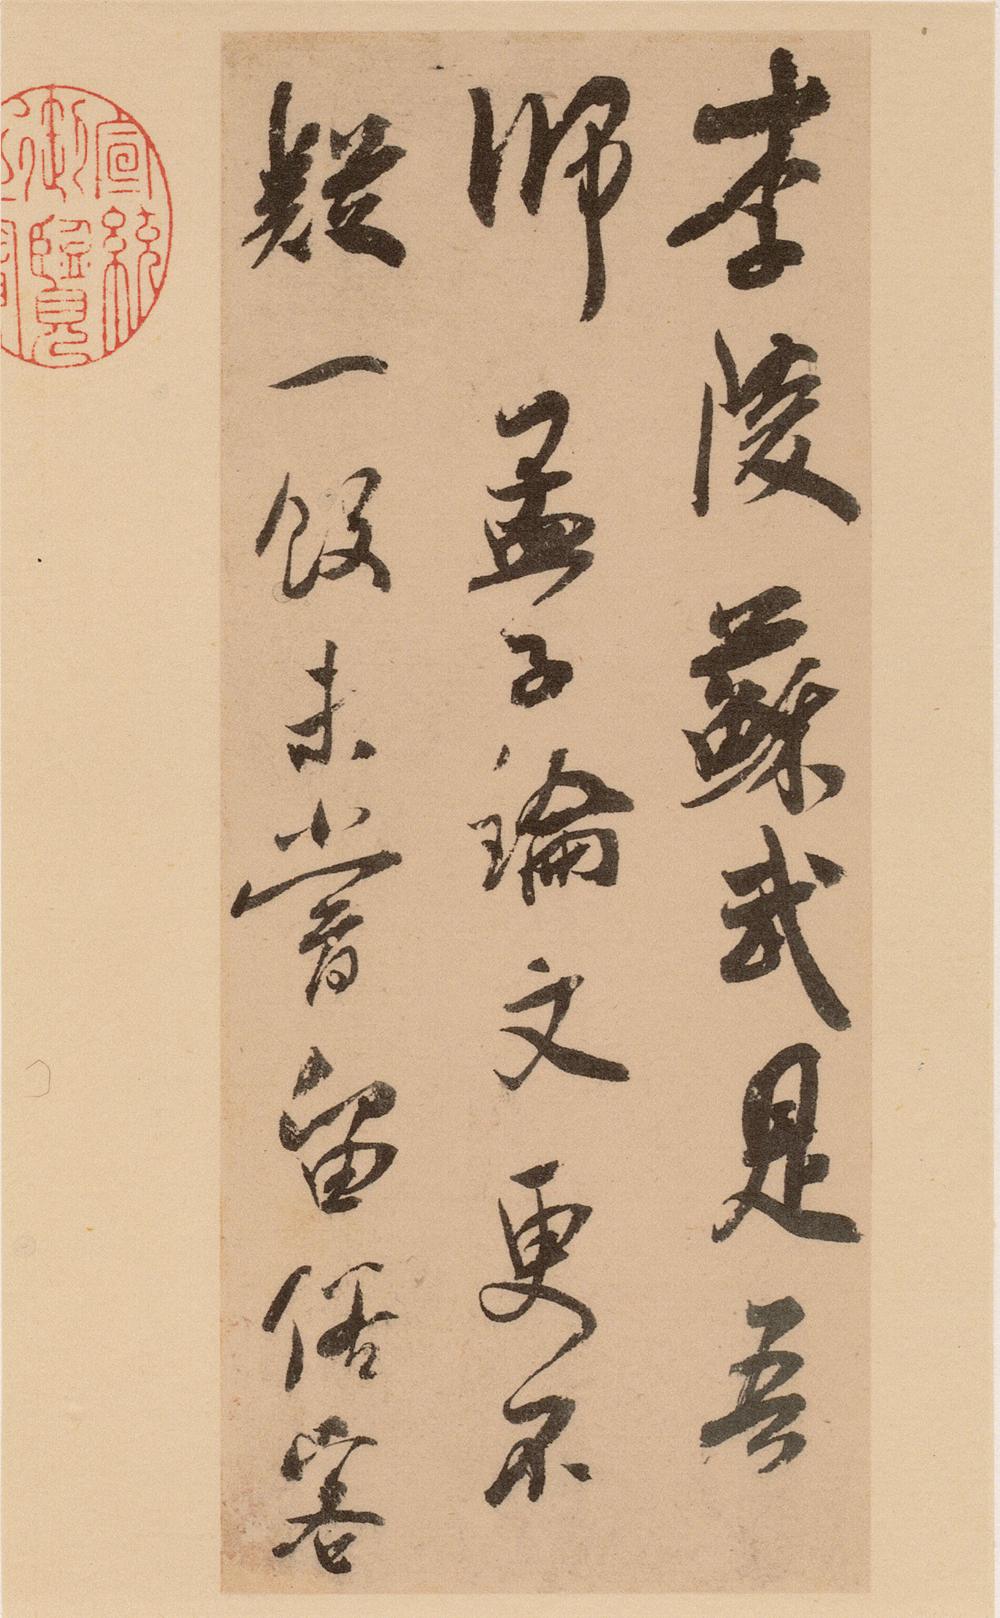 李陵蘇武是吾
師孟子論文更不
疑一飯未嘗留俗客
宣統御覽之寶